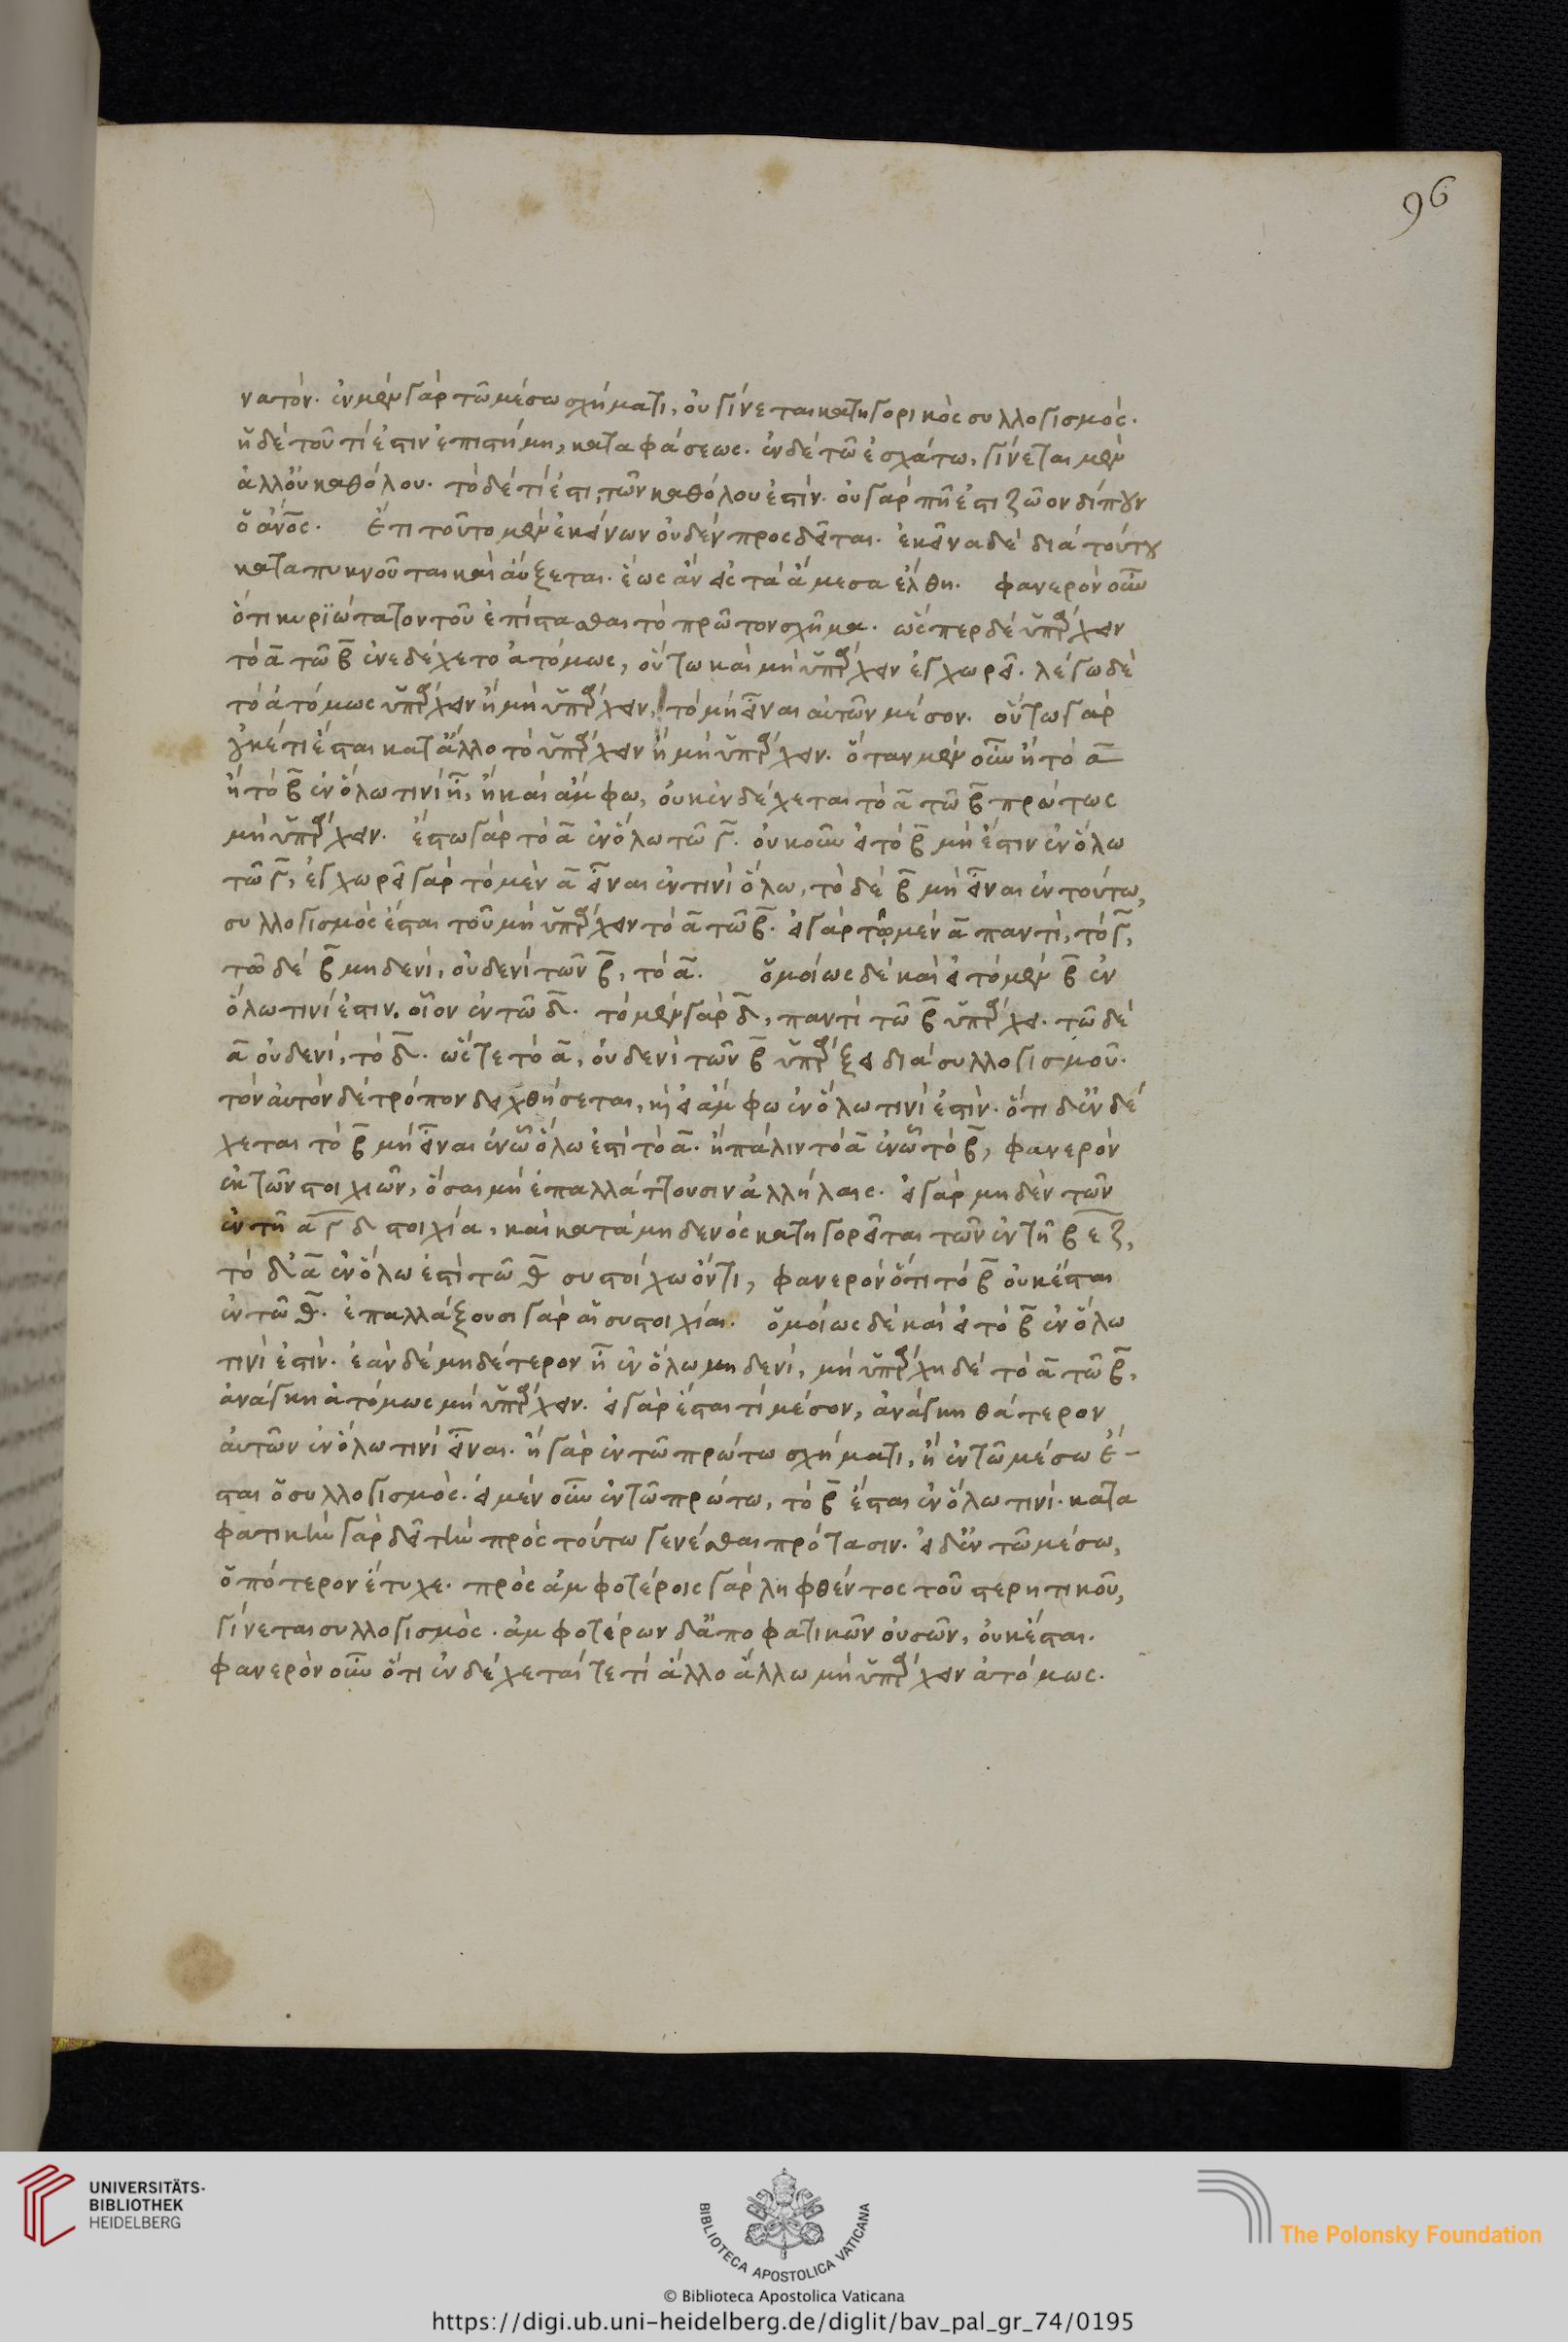 96
νατόν. ἐν μὲν γὰρ τῶ μέσω σχήματι, οὐ γίνεται κατηγορικὸς συλλογισμός.
ἡ δὲ τοῦ τί ἐστιν ἐπιστήμη, καταφάσεως. ἐν δὲ τῶ ἐσχάτω, γίνεται μὲν
ἀλλ' οὐ καθόλου. τὸ δὲ τί ἐστι, τῶν καθόλου ἐστίν. οὐ γὰρ πῆ ἐστι ζῶον δίπουν
ὁ ἄνος. ἔτι τοῦτο μὲν ἐκείνων οὐδὲν προσδεῖται. ἐκεῖνα δὲ διὰ τούτου
καταπυκνοῦται καὶ αὔξεται. ἕως ἂν εἰς τὰ ἄμεσα ἔλθη. φανερὸν οὖν
ὅτι κυρϊώτατον τοῦ ἐπίστασθαι τὸ πρῶτον σχῆμα. ὥσπερ δὲ ὑπάρχειν
τὸ α τῶ β ἐνεδέχετο ἀτόμως, οὕτω καὶ μὴ ὑπάρχειν ἐγχωρεῖ. λέγω δὲ
τὸ ἀτόμως ὑπάρχειν ἢ μὴ ὑπάρχειν, τὸ μὴ εἶναι αὐτῶν μέσον. οὕτω γὰρ
οὐκέτι ἔσται κατ' ἄλλο τὸ ὑπάρχειν ἢ μὴ ὑπάρχειν. ὅταν μὲν οὖν ἢ τὸ α
ἢ τὸ β ἐν ὅλω τινὶ ῆ, ἢ καὶ ἄμφω, οὐκ ἐνδέχεται τὸ α τῶ β πρώτως
μὴ ὑπάρχειν. ἔστω γὰρ τὸ α ἐν ὅλω τῶ γ. οὐκοῦν εἰ τὸ β μή ἐστιν ἐν ὅλω
τῶ γ, ἐγχωρεῖ γὰρ τὸ μὲν α εἶναι ἐν τινὶ ὅλω, τὸ δὲ β μὴ εἶναι ἐν τούτω,
συλλογισμὸς ἔσται τοῦ μὴ ὑπάρχειν τὸ α τῶ β. εἰ γὰρ τῶ μὲν α παντὶ, τὸ γ,
τῶ δὲ β μηδενὶ, οὐδενὶ τῶν β, τὸ α. ὁμοίως δὲ καὶ εἰ τὸ μὲν β ἐν
ὅλω τινί ἐστιν. οἷον ἐν τῶ δ. τὸ μὲν γὰρ δ, παντὶ τῶ β ὑπάρχει. τῶ δὲ
α οὐδενὶ, τὸ δ. ὥστε τὸ α, οὐδενὶ τῶν β ὑπάρξει διὰ συλλογισμοῦ.
τὸν αὐτὸν δὲ τρόπον δειχθήσεται, κὶ εἰ ἄμφω ἐν ὅλω τινί ἐστίν. ὅτι δ' ἐνδέ
χεται τὸ β μὴ εἶναι ἐν ὧ ὅλω ἐστὶ τὸ α. ἢ πάλιν τὸ α ἐν ὧ τὸ β, φανερὸν
ἐκ τῶν στοιχιῶν, ὅσαι μὴ ἐπαλλάττουσιν ἀλλήλαις. εἰ γὰρ μηδὲν τῶν
ἐν τῆ α γ δ στοιχία, καὶ κατὰ μηδενὸς κατηγορεῖται τῶν ἐν τῆ β ε ζ,
τὸ δ' α ἐν ὅλω ἐστὶ τῶ θ συστοίχω ὄντι, φανερὸν ὅτι τὸ β οὐκ ἔσται
ἐν τῶ θ. ἐπαλλάξουσι γὰρ αἱ συστοιχίαι. ὁμοίως δὲ καὶ εἰ τὸ β ἐν ὅλω
τινί ἐστίν. ἐὰν δὲ μηδέτερον ῆ ἐν ὅλω μηδενὶ, μὴ ὑπάρχη δὲ τὸ α τῶ β,
ἀνάγκη ἀτόμως μὴ ὑπάρχειν. εἰ γὰρ ἔσται τὶ μέσον, ἀνάγκη θάτερον
αὐτῶν ἐν ὅλω τινὶ εἶναι. ἢ γὰρ ἐν τῶ πρώτω σχήματι, ἢ ἐν τῶ μέσω ἔ-
σται ὁ συλλογισμὸς. εἰ μὲν οὖν ἐν τῶ πρώτω, τὸ β ἔσται ἐν ὅλω τινί. κατα
φατικὴν γὰρ δεῖ τὴν πρὸς τούτω γενέσθαι πρότασιν. εἰ δ' ἐν τῶ μέσω,
ὁπότερον ἔτυχε. πρὸς ἀμφοτέροις γὰρ ληφθέντος τοῦ στερητικοῦ,
γίνεται συλλογισμὸς. ἀμφοτέρων δ' ἀποφατικῶν οὐσῶν, οὐκ ἔσται.
φανερὸν οὖν ὅτι ἐνδέχεταί τε τὶ ἄλλο ἄλλω μὴ ὑπάρχειν ἀτόμως.
UNIVERSITÄTS-
BIBLIOTHEK
HEIDELBERG
BIBLIOTECA APOSTOLICA VATICANA
The Polonsky Foundation
© Biblioteca Apostolica Vaticana
https://digi.ub.uni-heidelberg.de/diglit/bav_pal_gr_74/0195